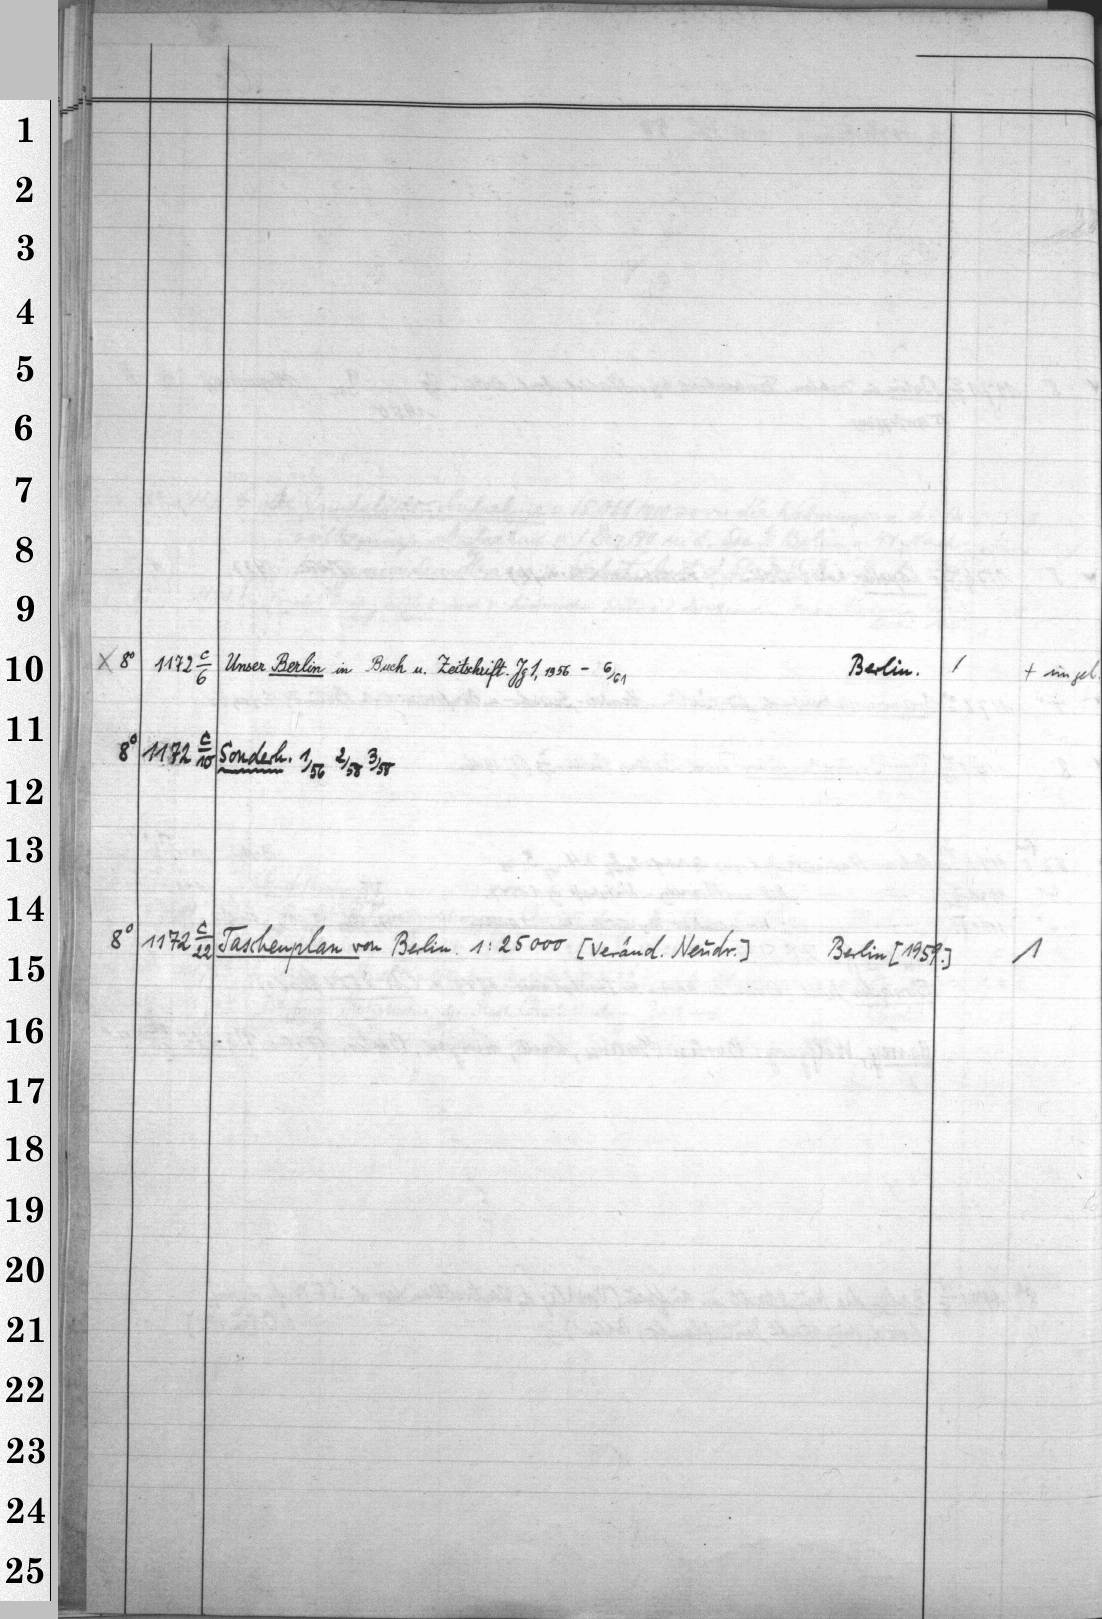 1
2
3
4
5
6
7
8
9
10 X 8° 1172 c/6 Unser Berlin in Buch u. Zeitschrift. Jg 1, 1956 - 6/61 Berlin. / +
11
8° 1172 c/10 Sonderh. 1/56 2/58 3/58
12
13
14
8° 1172 c/22 Taschenplan von Berlin. 1:25000 [Veränd. Neudr.] Berlin [1959.] 1
15
16
17
18
19
20
21
22
23
24
25